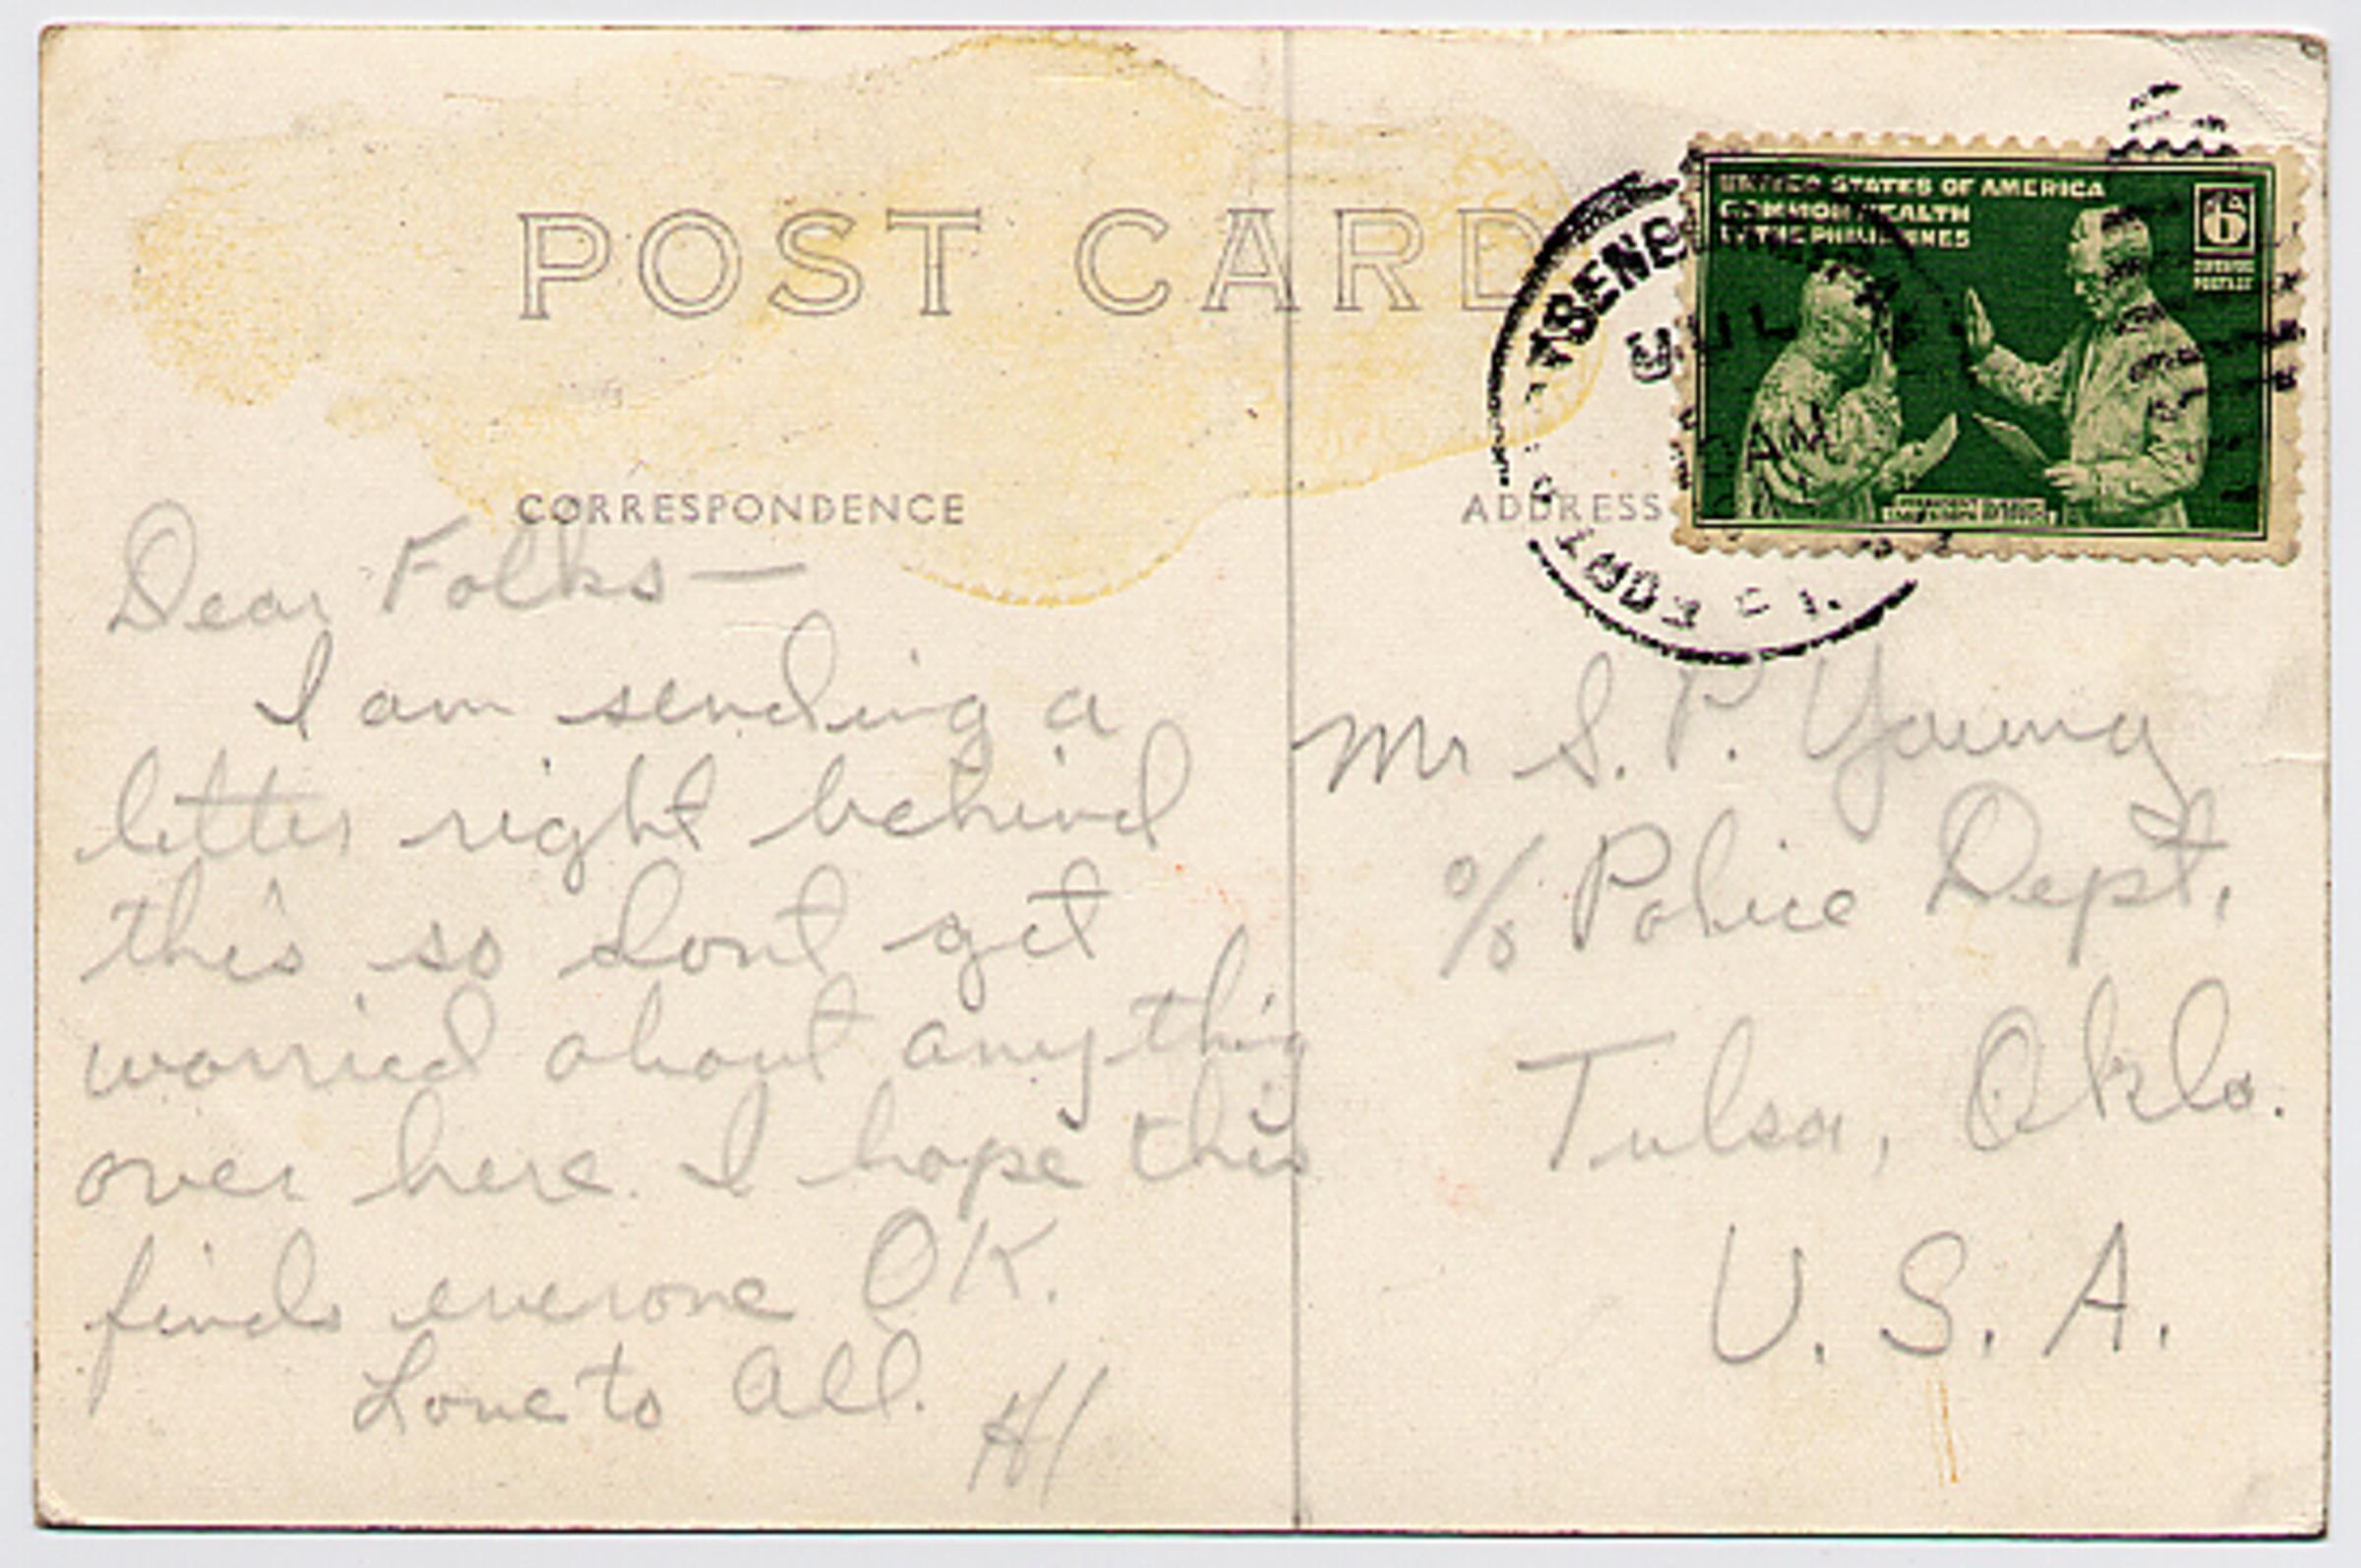 POST CARD
CORRESPONDENCE
ADDRESS
UNITED STATES OF AMERICA
COMMONWEALTH
OF THE PHILIPPINES
6
CENTAVOS
POSTAGE
AM
FORT
Dear Folks —
I am sending a
letter right behind
this so dont get
worried about anything
over here. I hope this
finds everone OK.
Love to all.
Mr S. P. Young
c/o Police Dept.
Tulsa, Okla.
U. S. A.